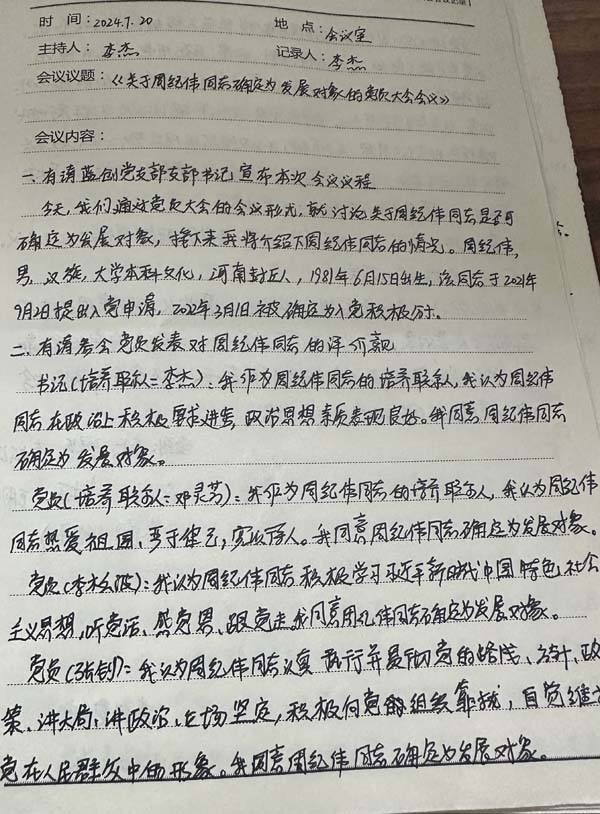 时 间：2024.7.20 地 点：会议室
主持人：李杰 记录人：李杰
会议议题：《关于周纪伟同志确定为发展对象的党员大会会议》
会议内容：
一、有请蓝创党支部支部书记宣布本次会议议程
今天，我们通过党员大会的会议形式，就讨论关于周纪伟同志是否可
确定为发展对象，接下来我将介绍下周纪伟同志的情况。周纪伟，
男，汉族，大学本科文化，河南封丘人，1981年6月15日出生，该同志于2021年
9月2日提出入党申请，2022年3月1日被确定为入党积极分子。
二、有请参会党员发表对周纪伟同志的评价意见
书记（培养联系人：李杰）：我作为周纪伟同志的培养联系人，我认为周纪伟
同志在政治上积极要求进步，政治思想素质表现良好。我同意周纪伟同志
确定为发展对象。
党员（培养联系人：邓灵芳）：我作为周纪伟同志的培养联系人，我认为周纪伟
同志热爱祖国、严于律己，宽以待人。我同意周纪伟同志确定为发展对象。
党员（李松波）：我认为周纪伟同志积极学习习近平新时代中国特色社会
主义思想，听党话、感党恩、跟党走，我同意周纪伟同志确定为发展对象。
党员（张钊）：我认为周纪伟同志认真执行并贯彻党的路线、方针、政
策、讲大局、讲政治、立场坚定，积极向党的组织靠拢，自觉维护
党在人民群众中的形象。我同意周纪伟同志确定为发展对象。